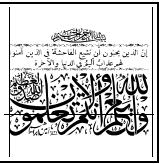 بسم الله الرحمن الرحيم
إن الذين يحبون أن تشيع الفاحشة في الذين آمنوا
لهم عذاب أليم في الدنيا والآخرة
والله يعلم وأنتم لا تعلمون